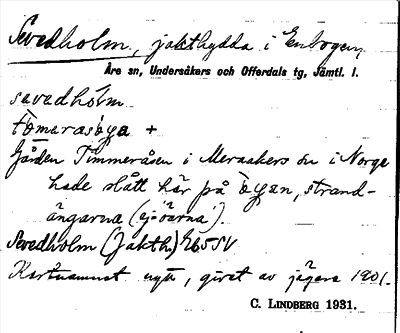 Sevedholm, jakthydda i Enbogen,
Åre sn, Undersåkers och Offerdals tg, Jämtl. l.
sevedhólm
tòmeråsø̀ya +
Gården Timmeråsen i Meraakers sn i Norge
hade slått här på òyan, strand-
ängarna (ej "öarna").
Sevedholm (Jakth.) 265SV
Kartnamnet nytt, givet av jägare 1901.
C. LINDBERG 1931.